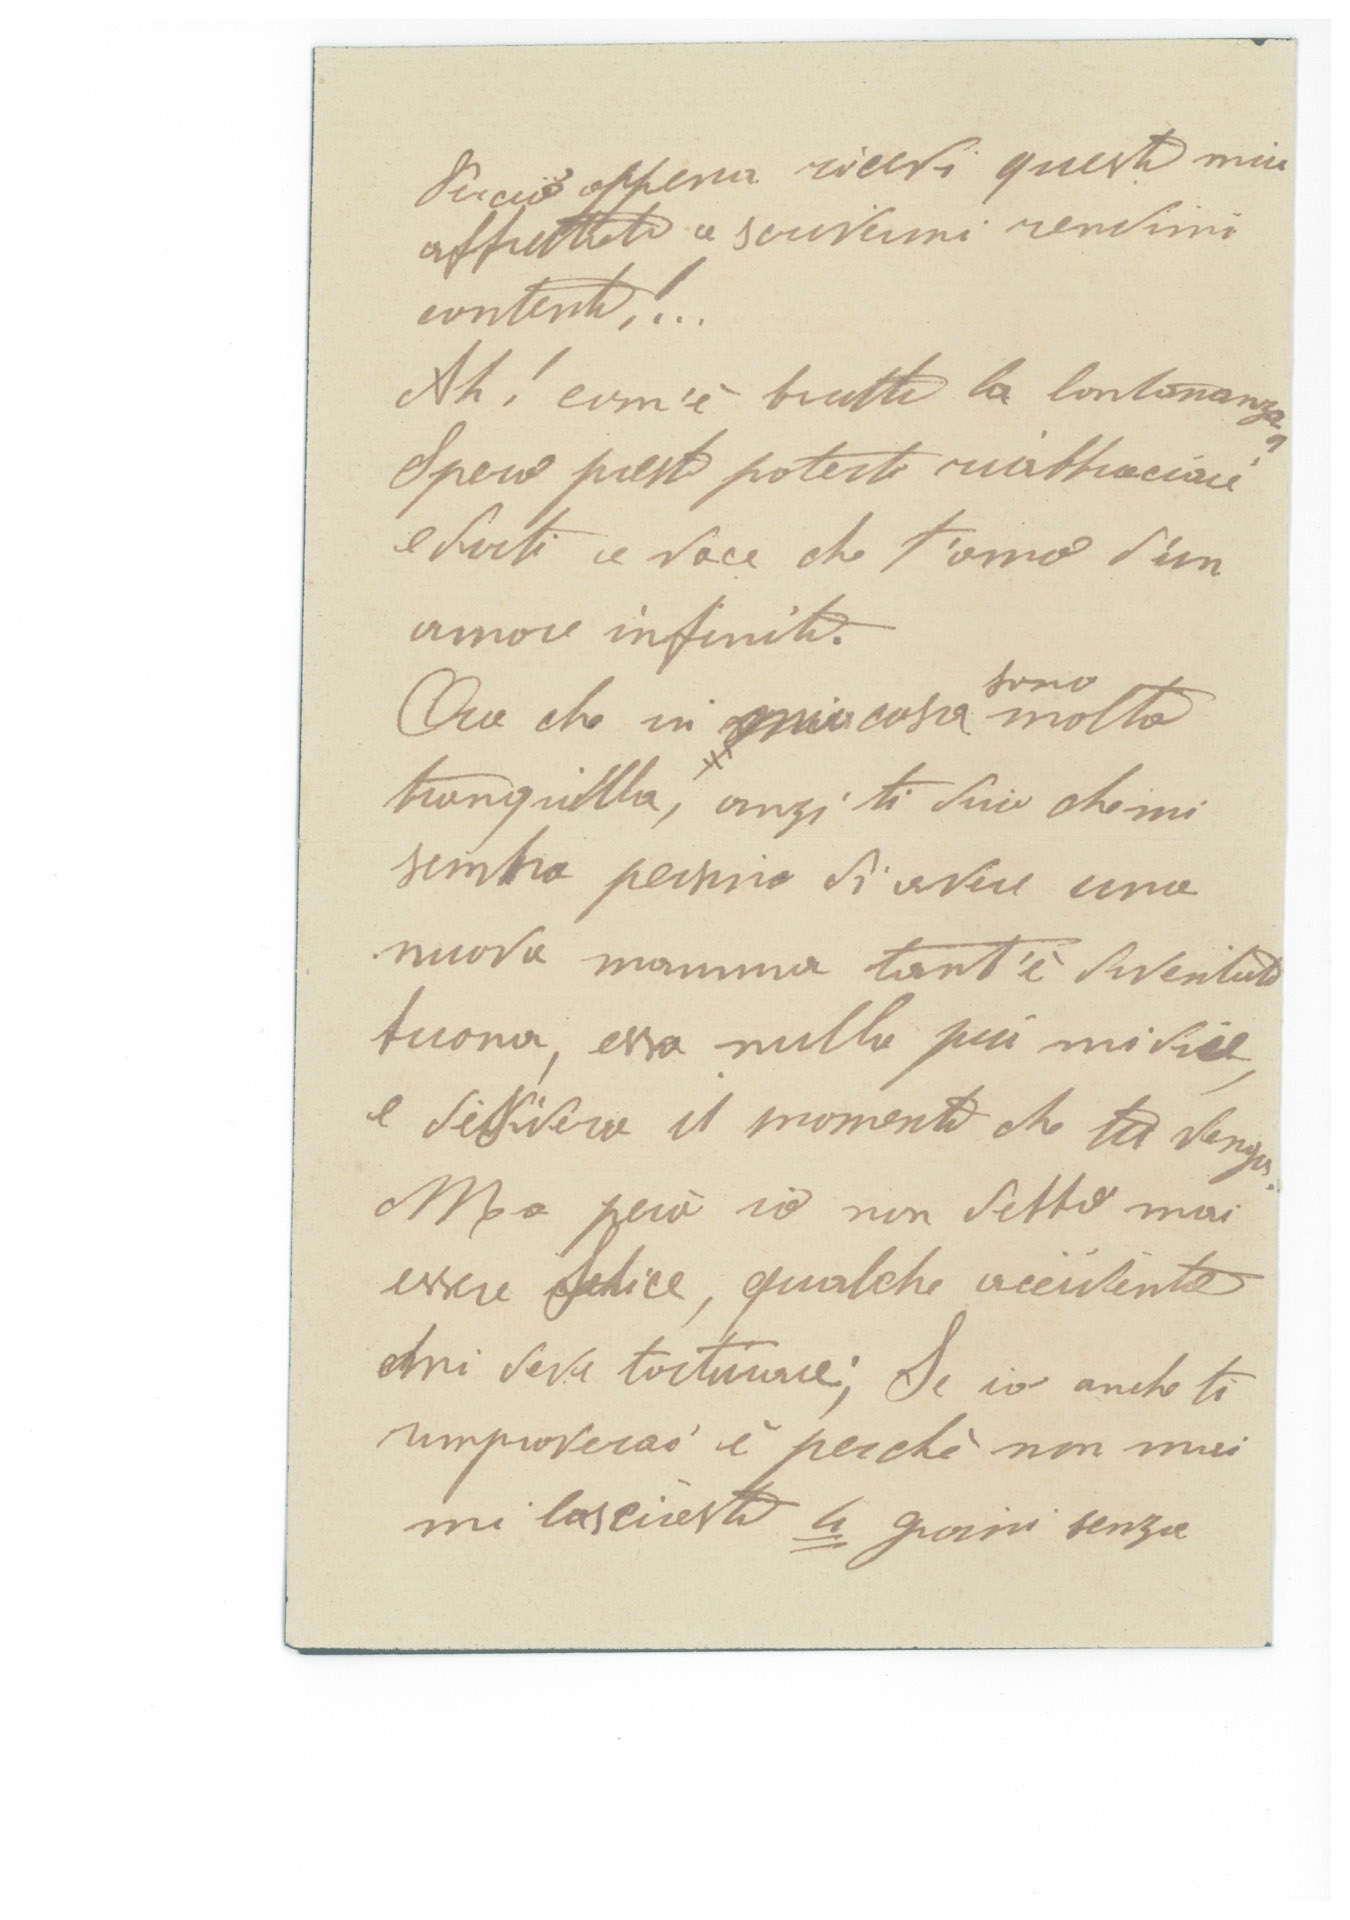 Perciò appena ricevi questa mia
affrettati a scrivermi rendimi
contenta,!...
Ah! com'è brutta la lontananza,
Spero presto poterti riabbracciare
e dirti a voce che t'amo d'un
amore infinito.
Ora che in mia casa sono molto
tranquilla, anzi ti dirò che mi
sembra persino di avere una
nuova mamma tant'è diventata
buona, essa nulla più mi dice,
e desidera il momento che tu venga.
Ma però io non debbo mai
essere felice, qualche accidente
mi deve torturare; Se io anche ti
rimproverai è perchè non mai
mi lasciasti 4 giorni senza